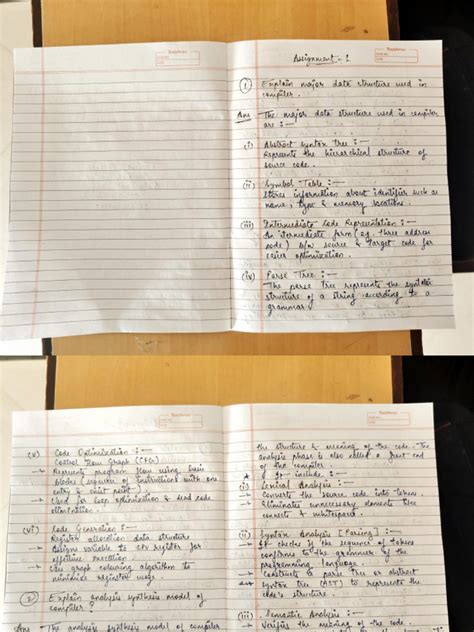 Assignment - 1
(1) Explain major data structure used in
compiler.
Ans The major data structure used in compiler
are :-
(i) Abstract Syntax Tree :-
Represents the hierarchical structure of
source code.
(ii) Symbol Table :-
Stores information about identifier such as
name, type & memory locations.
(iii) Intermediate Code Representation :-
An intermediate form (eg. three address
code) b/w source & target code for
easier optimization.
(iv) Parse Tree :-
The parse tree represents the syntatic
structure of a string according to a
grammar.
(v) Code Optimization :-
Control Flow Graph (CFG)
→ Represents program flow using basic
blocks (sequence of instructions with one
entry & exit point)
→ Used for loop optimization & dead code
elimination.
(vi) Code Generation :-
Register allocation data structure
→ Assigns variable to CPU register for
effective execution
→ Use graph colouring algorithm to
minimize register usage.
(2) Explain analysis synthesis model of
compiler ?
Ans The analysis synthesis model of compiler
the structure & meaning of the code. The
analysis phase is also called a front end
of the compiler.
It include :
(i) Lexical Analysis :-
→ Converts the source code into tokens.
→ Eliminates unnecessary elements like
comments & whitespaces.
(ii) Syntax Analysis [Parsing] :-
→ It checks if the sequence of tokens
conforms to the grammar of the
programming language.
→ Constructs a parse tree or abstract
syntax tree (AST) to represents the
code's structure.
(iii) Semantic Analysis :-
→ Verifies the meaning of the code.